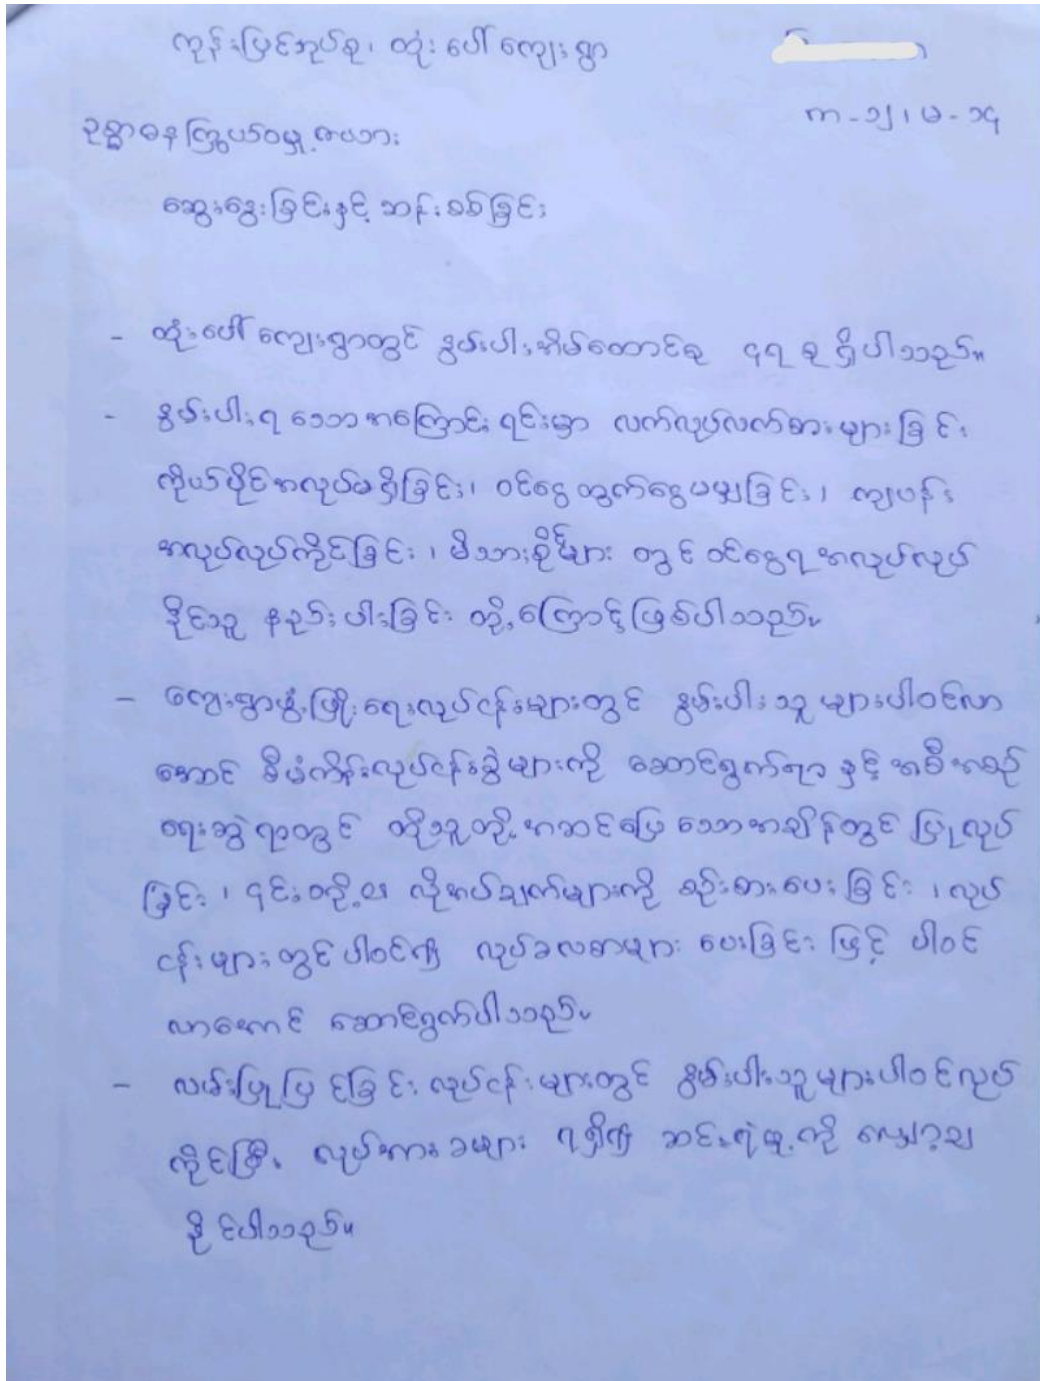 ကုန်းမြင့်အုပ်စု၊ ထုံးပေါ်ကျေးရွာ
ကာ-၁၂၊ မ-၁၄
ဥစ္စာဓနကြွယ်ဝမှုဇယား
ဆွေးနွေးခြင်းနှင့် ဆန်းစစ်ခြင်း
- ထုံးပေါ်ကျေးရွာတွင် နွမ်းပါးအိမ်ထောင်စု ၄၇ စု ရှိပါသည်။
- နွမ်းပါးရသောအကြောင်းရင်းမှာ လက်လုပ်လက်စားများခြင်း
ကိုယ်ပိုင်အလုပ်မရှိခြင်း၊ ဝင်ငွေထွက်ငွေမမျှခြင်း၊ ကျပန်း
အလုပ်လုပ်ကိုင်ခြင်း၊ မိသားစုဝင်များ တွင် ဝင်ငွေရအလုပ်လုပ်
နိုင်သူ နည်းပါးခြင်း တို့ကြောင့်ဖြစ်ပါသည်။
- ကျေးရွာဖွံ့ဖြိုးရေးလုပ်ငန်းများတွင် နွမ်းပါးသူများပါဝင်လာ
အောင် စီမံကိန်းလုပ်ငန်းခွဲများကို ဆောင်ရွက်ရာနှင့် အစီအစဉ်
ရေးဆွဲရာတွင် ထိုသူတို့အဆင်ပြေသောအချိန်တွင် ပြုလုပ်
ခြင်း၊ ၎င်းတို့၏ လိုအပ်ချက်များကို စဉ်းစားပေးခြင်း၊ လုပ်
ငန်းများတွင်ပါဝင်၍ လုပ်ခလစာများ ပေးခြင်းဖြင့် ပါဝင်
လာအောင် ဆောင်ရွက်ပါသည်။
- လမ်းပြုပြင်ခြင်းလုပ်ငန်းများတွင် နွမ်းပါးသူများပါဝင်လုပ်
ကိုင်ပြီး လုပ်အားခများ ရရှိ၍ ဆင်းရဲမှုကို လျှော့ချ
နိုင်ပါသည်။